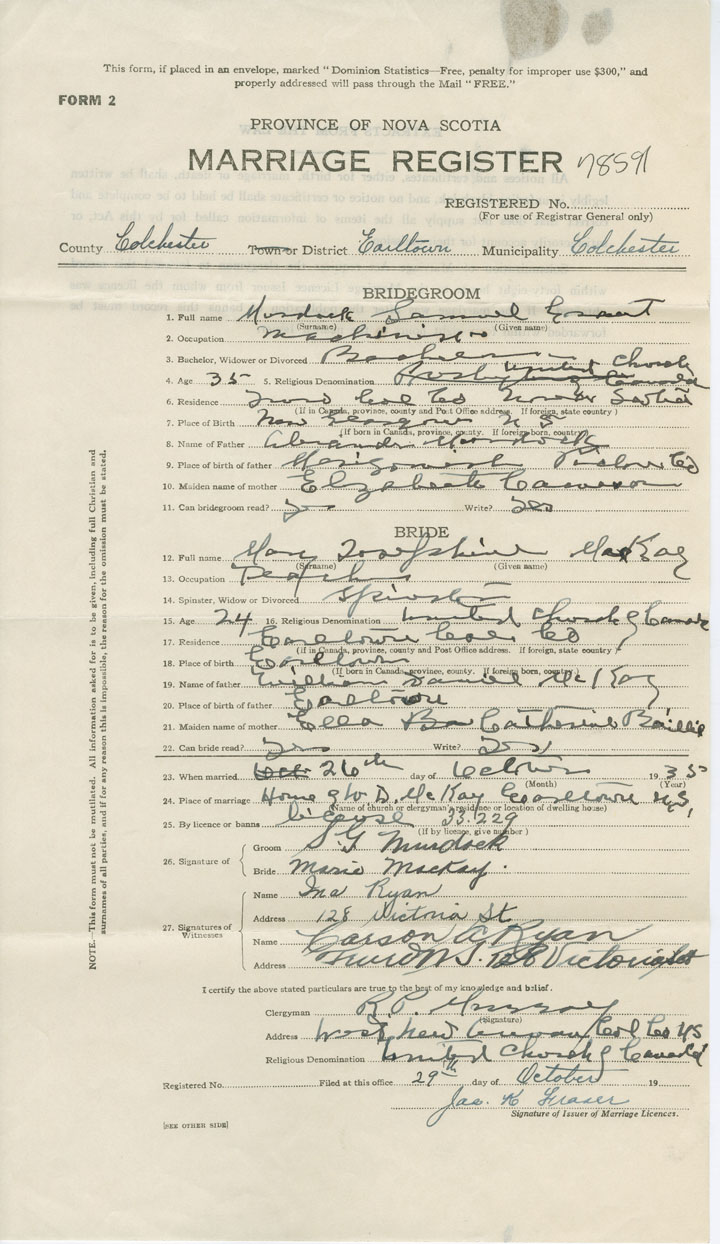 This form, if placed in an envelope, marked "Dominion Statistics—Free, penalty for improper use $300," and
properly addressed will pass through the Mail "FREE."
FORM 2
PROVINCE OF NOVA SCOTIA
MARRIAGE REGISTER 78591
REGISTERED No.
(For use of Registrar General only)
County Colchester Town or District Earltown Municipality Colchester
BRIDEGROOM
1. Full name Murdock Samuel Grant
(Surname) (Given name)
2. Occupation Machinist
3. Bachelor, Widower or Divorced Bachelor
United Church
4. Age 35 5. Religious Denomination Canada
6. Residence Truro Col Co Nova Scotia
(If in Canada, province, county and Post Office address. If foreign, state country)
7. Place of Birth New Glasgow N S
(If born in Canada, province, county. If foreign born, country.)
8. Name of Father Alexander Murdock
9. Place of birth of father Pictou Co
10. Maiden name of mother Elizabeth Cameron
11. Can bridegroom read? Yes Write? Yes
BRIDE
12. Full name Mary Josephine MacKay
(Surname) (Given name)
13. Occupation Teacher
14. Spinster, Widow or Divorced Spinster
15. Age 24 16. Religious Denomination United Church of Canada
17. Residence Earltown Col Co
(If in Canada, province, county and Post Office address. If foreign, state country)
18. Place of birth Earltown
(If born in Canada, province, county. If foreign born, country.)
19. Name of father William Daniel McKay
20. Place of birth of father Earltown
21. Maiden name of mother Ella Catherine Baillie
22. Can bride read? Yes Write? Yes
23. When married Oct 26th day of October 1935
(Month) (Year)
24. Place of marriage Home of W. D. McKay Earltown N.S.
(Name of church or clergyman's residence or location of dwelling house)
25. By licence or banns license 33.229
(If by licence, give number)
26. Signature of
Groom S G Murdock
Bride Marie MacKay.
27. Signatures of Witnesses
Name Ina Ryan
Address 128 Victoria St
Name Carson A Ryan
Address Truro N.S. 128 Victoria St
I certify the above stated particulars are true to the best of my knowledge and belief.
Clergyman R. P. Murray
(Signature)
Address West New Annan Col Co NS
Religious Denomination United Church of Canada
Registered No. Filed at this office 29th day of October 19
Jas. K Fraser
Signature of Issuer of Marriage Licences.
[SEE OTHER SIDE]
NOTE.—This form must not be mutilated. All information asked for is to be given, including full Christian and
surnames of all parties, and if for any reason this is impossible, the reason for the omission must be stated.